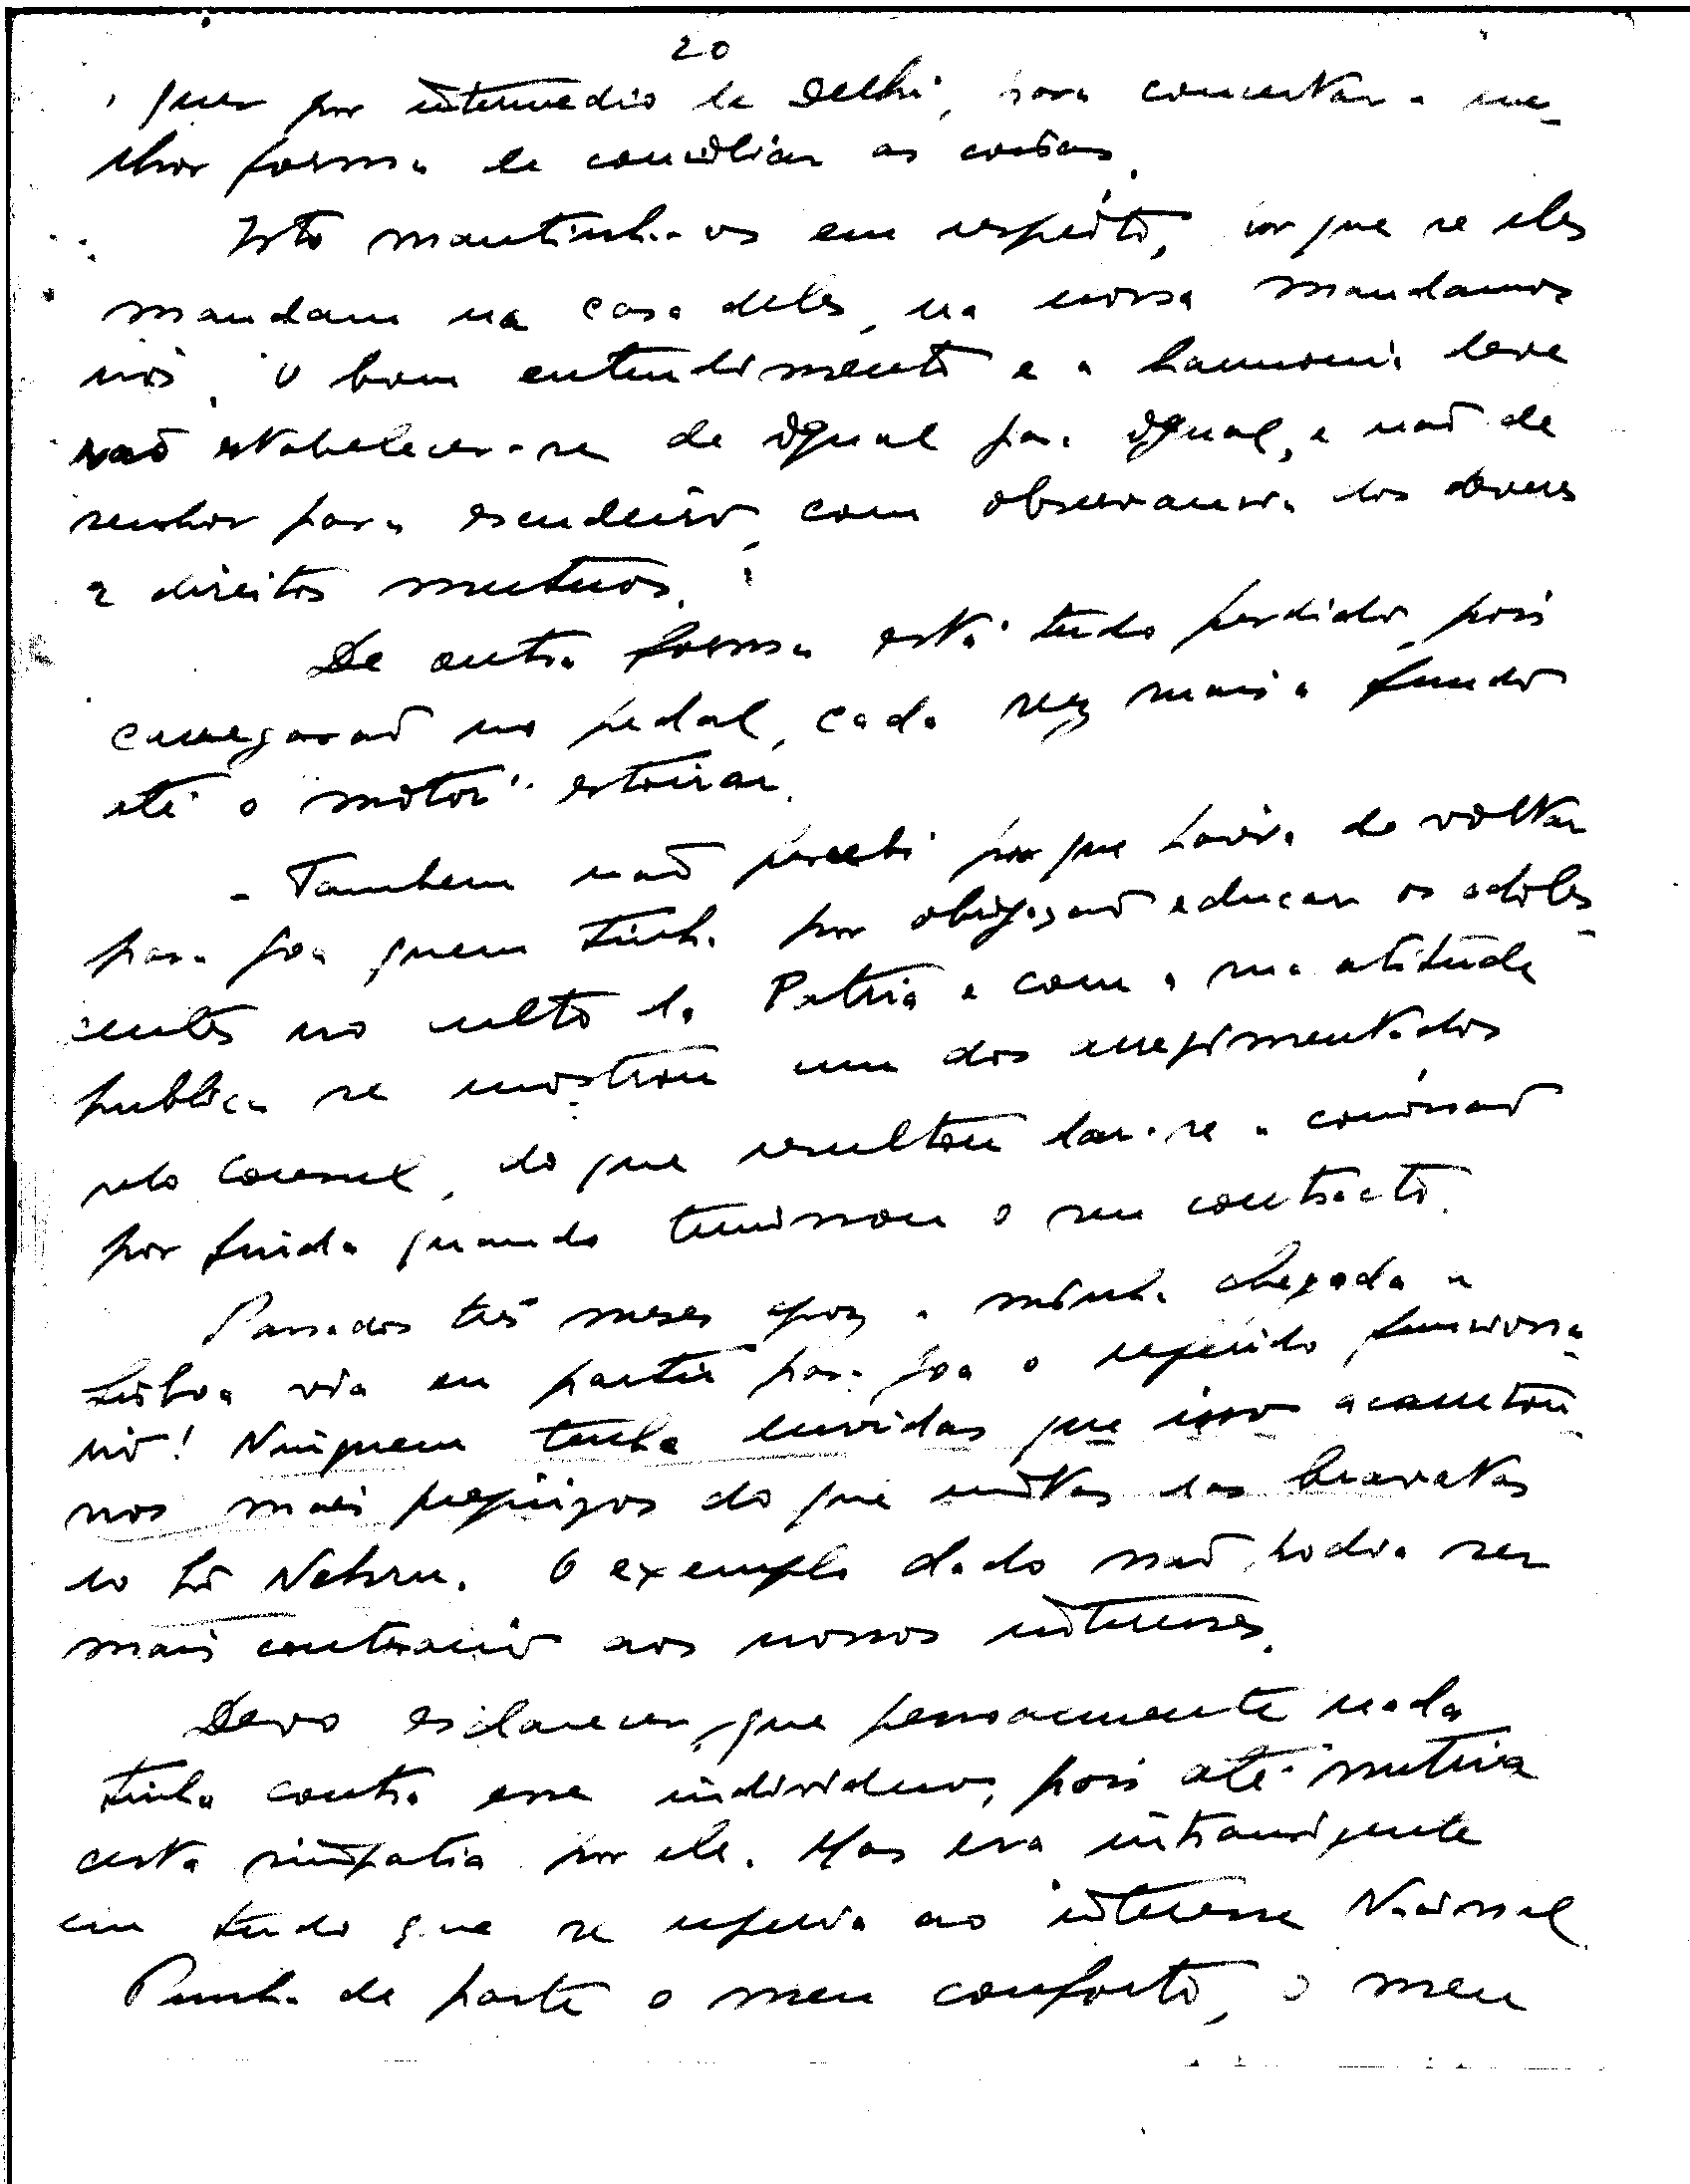 20
quer por intermedio de Delhi, para concertar a me-
lhor forma de conciliar as coisas.
Isto mantinha-os em respeito, por que se eles
mandam na casa deles, na nossa mandamos
nós. O bom entendimento e a harmonia deve
estabelecer-se de igual para igual, e não de
senhor para escudeiro, com observancia dos deveres
e direitos mutuos.
De outra forma está tudo perdido, pois
carregarão no pedal, cada vez mais a fundo
até o "motor" estoirar.
- Tambem não percebi por que havia de voltar
para Goa quem tinha por obrigação educar os adoles-
centes no culto da Patria e com a sua atitude
publica se mostrou um dos arregimentados
pelo Consul, do que resultou dar-se a comissão
por finda quando terminou o seu contracto.
Passados três meses apoz a minha chegada a
Lisboa via eu partir para Goa o referido funciona-
rio! Ninguem tenha duvidas que isso acarretou
nos mais prejuizos do que muitas das bravatas
do Nehru. O exemplo dado não podia ser
mais contrario aos nossos interesses.
Devo esclarecer, que pessoalmente nada
tinha contra esse individuo, pois até nutria
certa simpatia por ele. Mas era intransigente
em tudo que se referia ao interesse Nacional
Punha de parte o meu conforto, o meu